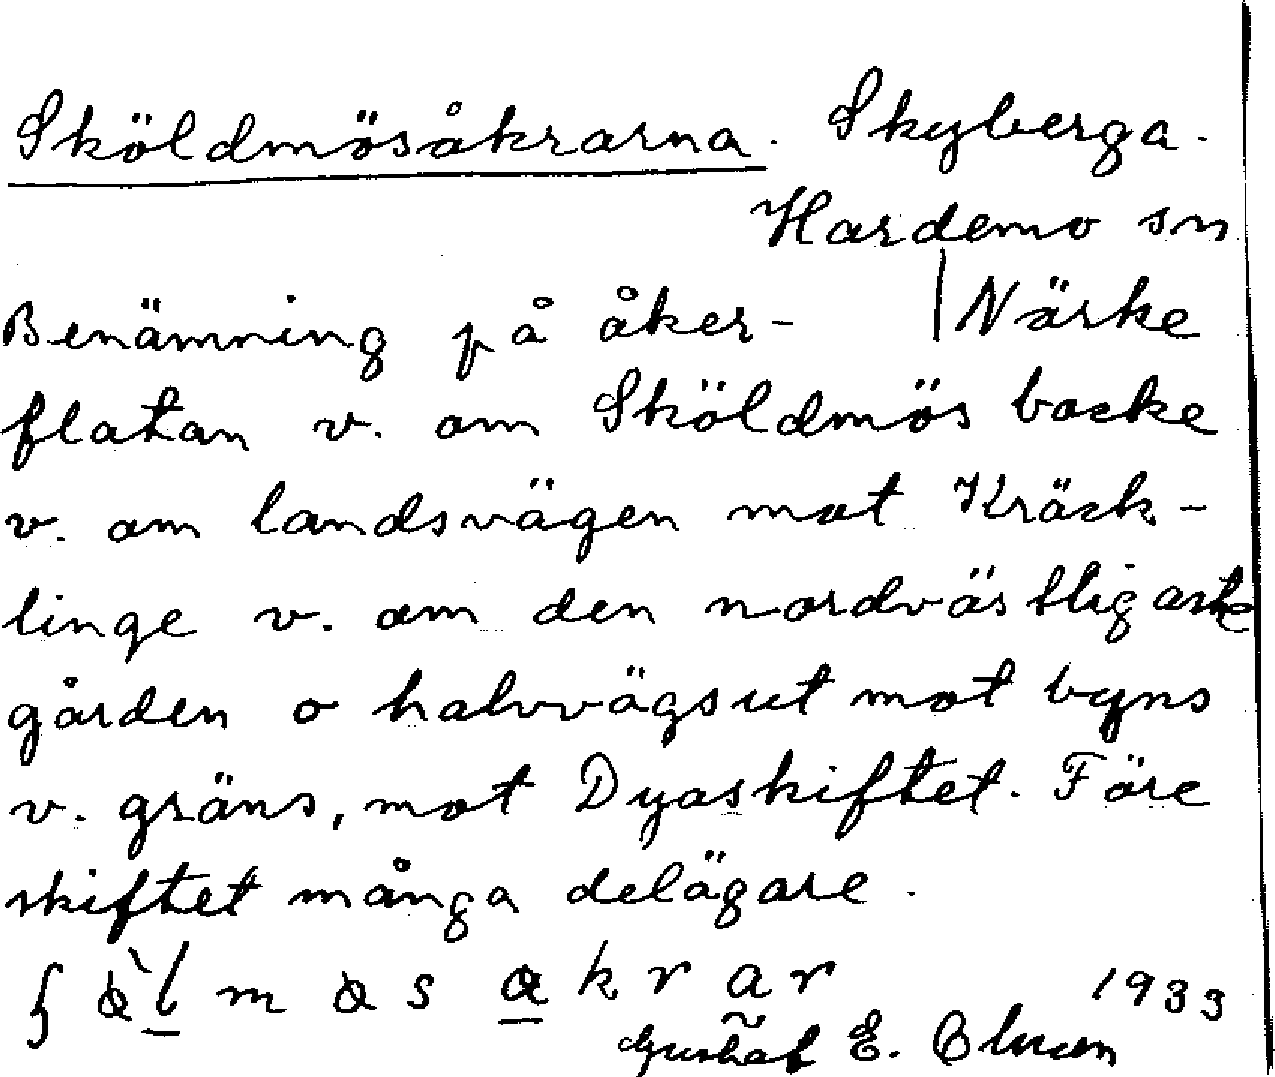 Sköldmösåkrarna. Skyberga.
Hardemo sn
Benämning på åker- | Närke
flatan v. om Sköldmös backe
v. om landsvägen mot Kräck-
linge v. om den nordvästligaste
gården o halvvägsut mot byns
v. gräns, mot Dyaskiftet. Före
skiftet många delägare.
1933
Gustaf E. Olsson